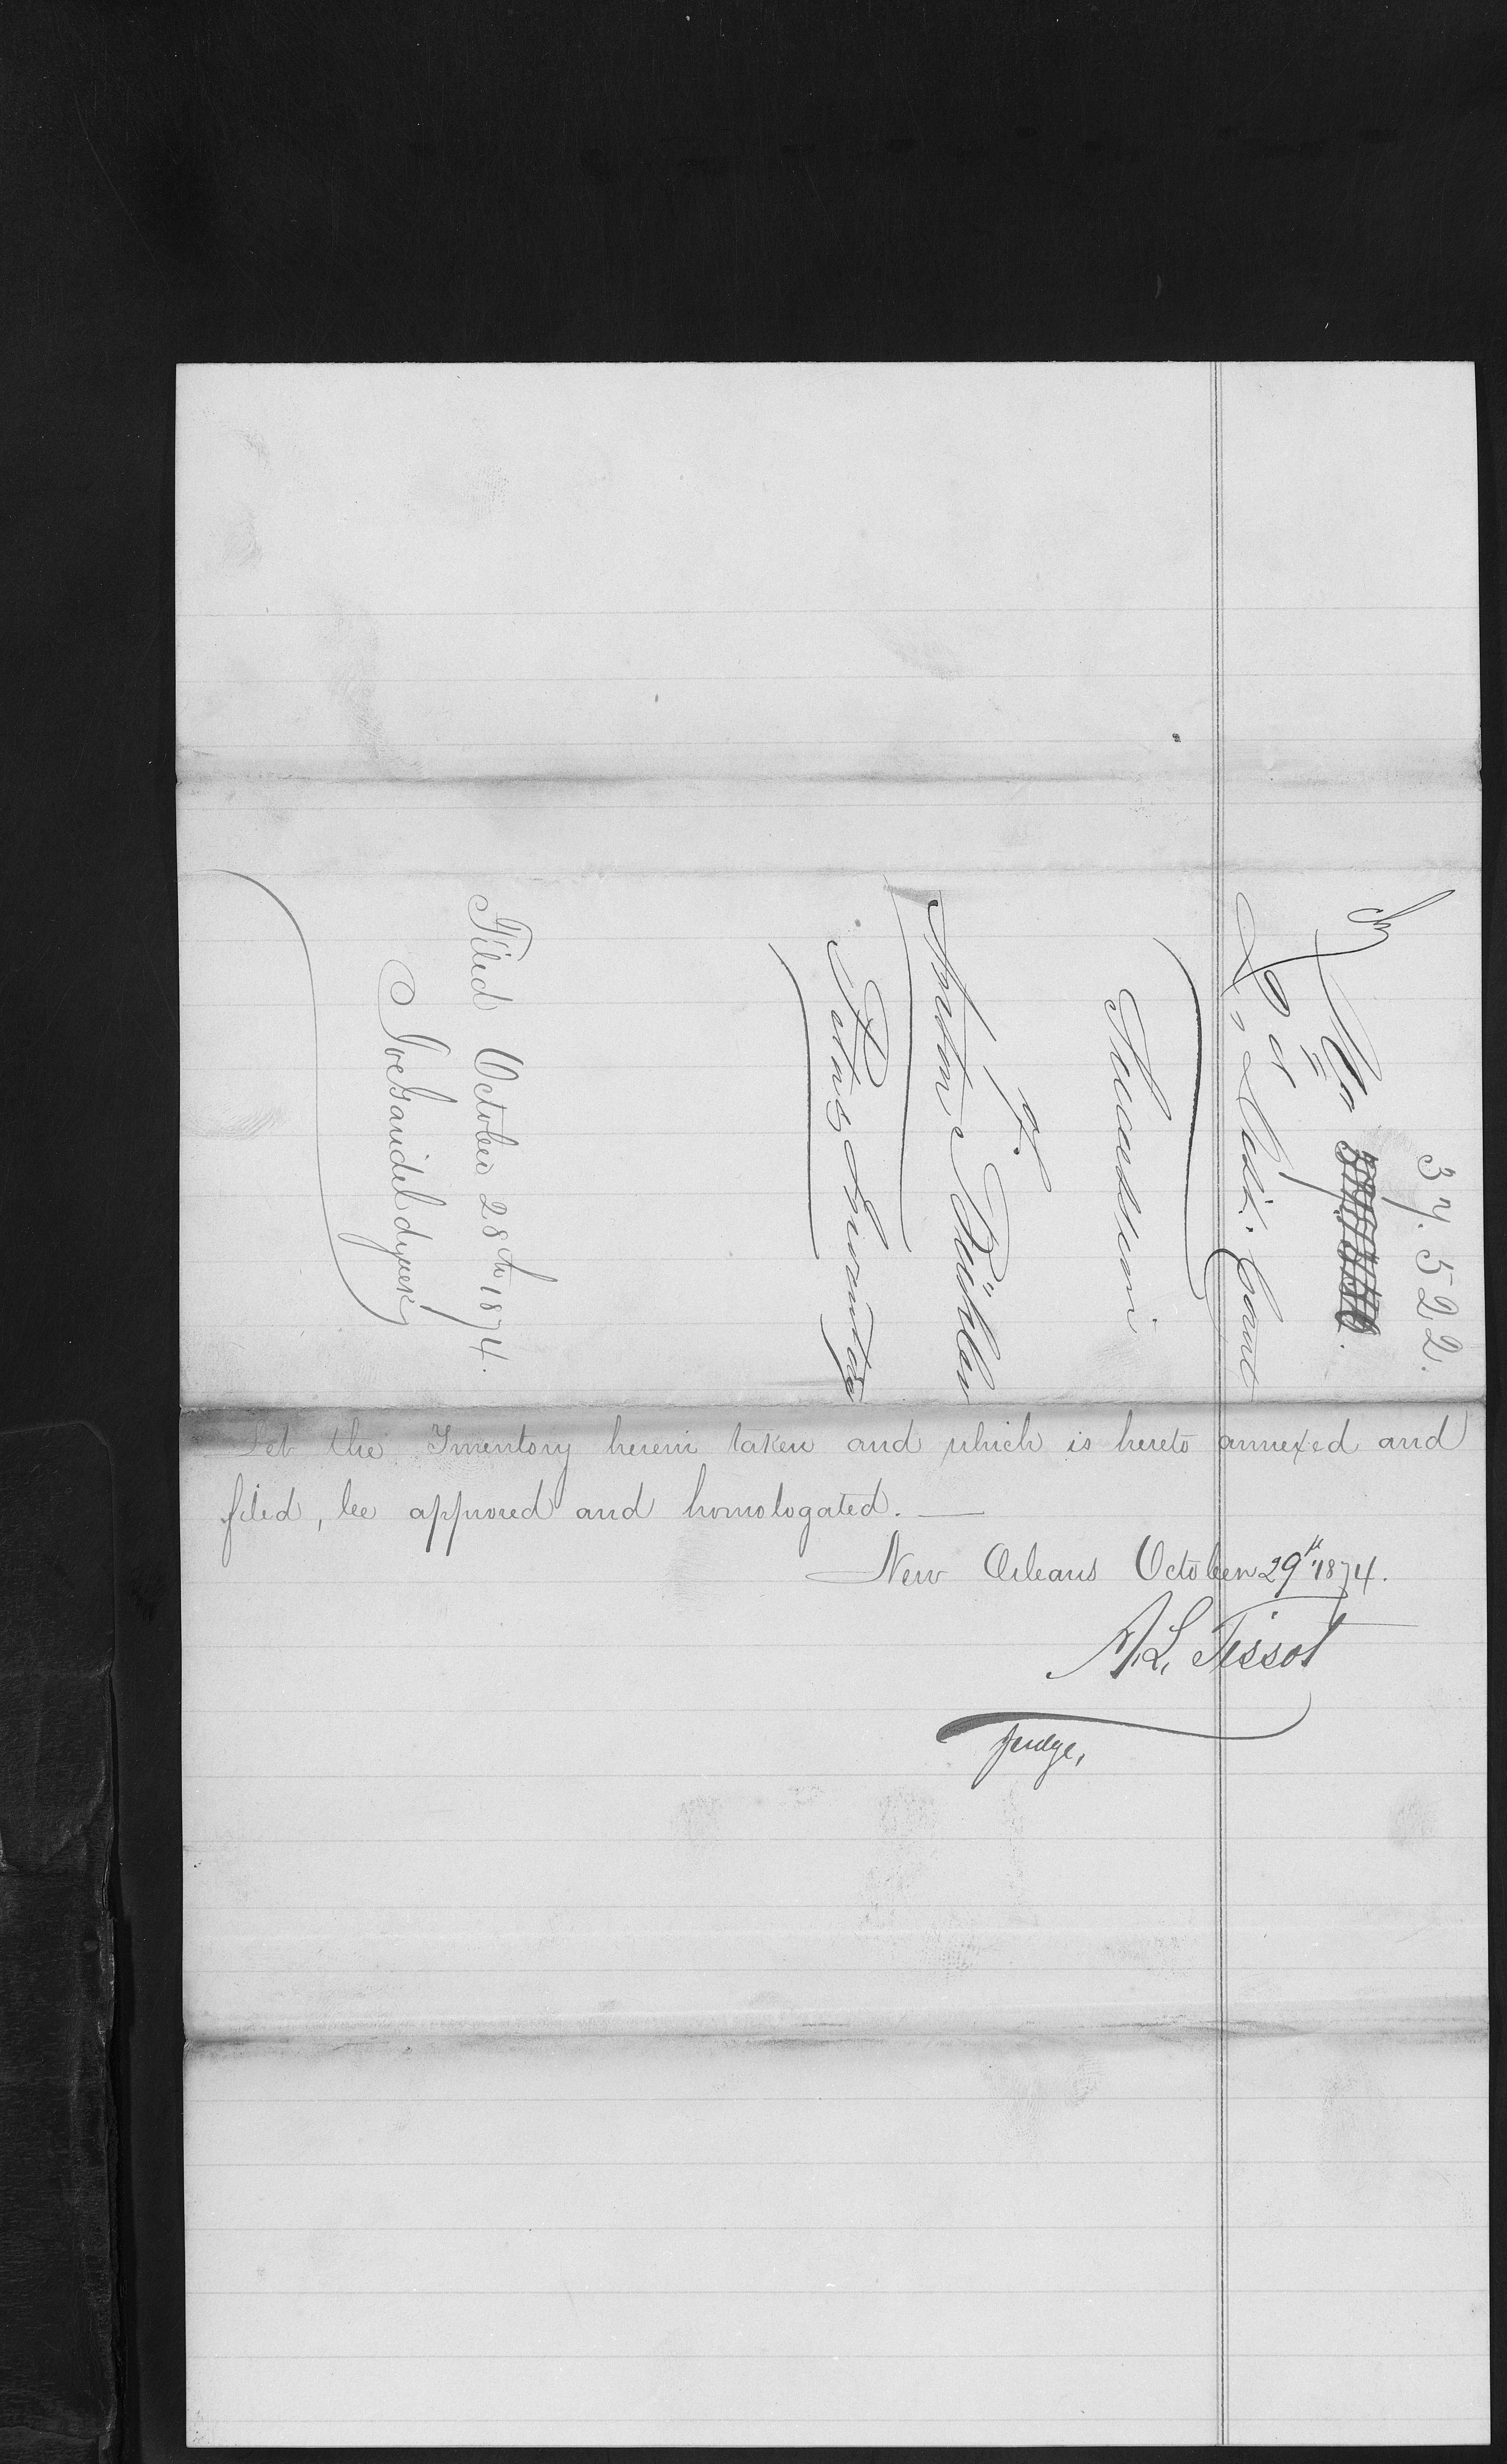 37.522.
No
2d Dist. Court
Succession
of
Anton Bühler
Filed October 28th 1874.
dy clerk
Let the Inventory herein taken and which is hereto annexed and
filed, be approved and homologated. —
New Orleans October 29th 1874.
A.L. Tissot
Judge,